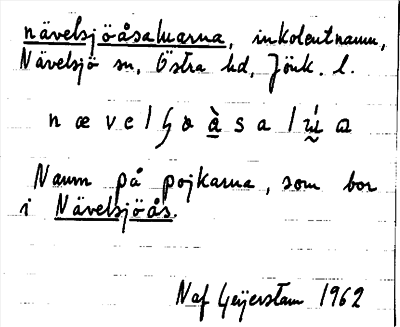 nävelsjöåsaluarna, inkolentnamn,
Nävelsjö sn, Östra hd, Jönk. l.
Namn på pojkarna, som bor
i Nävelsjöås.
Naf Geijerstam 1962